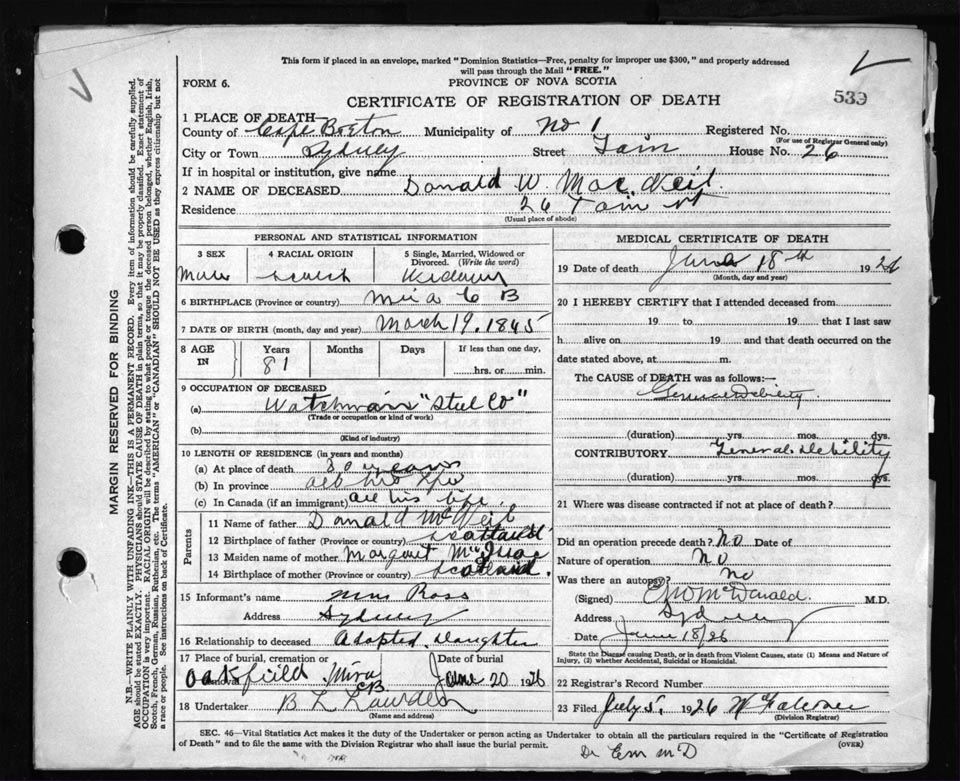 This form if placed in an envelope, marked "Dominion Statistics—Free, penalty for improper use $300," and properly addressed
will pass through the Mail "FREE."
FORM 6.
PROVINCE OF NOVA SCOTIA
CERTIFICATE OF REGISTRATION OF DEATH
539
1 PLACE OF DEATH—
County of Cape Breton Municipality of No 1 Registered No.
(For use of Registrar General only)
City or Town Sydney Street Tain House No. 26
If in hospital or institution, give name
2 NAME OF DECEASED Donald W. Mac Neil.
Residence 26 Tain st
(Usual place of abode)
PERSONAL AND STATISTICAL INFORMATION
3 SEX
Male
4 RACIAL ORIGIN
5 Single, Married, Widowed or Divorced. (Write the word)
6 BIRTHPLACE (Province or country) Mira C B
7 DATE OF BIRTH (month, day and year) March 19. 1845
8 AGE IN Years Months Days If less than one day,
81 hrs. or min.
9 OCCUPATION OF DECEASED
(a) Watchman "Steel Co"
(Trade or occupation or kind of work)
(b)
(Kind of industry)
10 LENGTH OF RESIDENCE (in years and months)
(a) At place of death years
(b) In province all his life
(c) In Canada (if an immigrant) all his life
Parents
11 Name of father Donald McNeil
12 Birthplace of father (Province or country) Scotland
13 Maiden name of mother Margaret McIsaac
14 Birthplace of mother (Province or country) Scotland.
15 Informant's name Mrs Ross
Address Sydney
16 Relationship to deceased Adopted daughter
17 Place of burial, cremation or Date of burial
Oaksfield Mira CB June 20 1926
18 Undertaker B L
(Name and address)
MEDICAL CERTIFICATE OF DEATH
19 Date of death June 18th 1926
(Month, day and year)
20 I HEREBY CERTIFY that I attended deceased from
19 to 19 that I last saw
h alive on 19 and that death occurred on the
date stated above, at m.
The CAUSE of DEATH was as follows:—
General Debility
(duration) yrs. mos. dys.
CONTRIBUTORY General Debility
(duration) yrs. mos. dys.
21 Where was disease contracted if not at place of death?
Did an operation precede death? No Date of
Nature of operation No
Was there an autopsy? no
(Signed) McDonald M.D.
Address Sydney
Date June 18/26
State the Disease causing Death, or in death from Violent Causes, state (1) Means and Nature of
Injury, (2) whether Accidental, Suicidal or Homicidal.
22 Registrar's Record Number
23 Filed July 5, 1926
(Division Registrar)
SEC. 46—Vital Statistics Act makes it the duty of the Undertaker or person acting as Undertaker to obtain all the particulars required in the "Certificate of Registration
of Death" and to file the same with the Division Registrar who shall issue the burial permit.
(OVER)
MARGIN RESERVED FOR BINDING
N.B.—WRITE PLAINLY WITH UNFADING INK—THIS IS A PERMANENT RECORD. Every item of information should be carefully supplied.
AGE should be stated EXACTLY. PHYSICIANS should STATE CAUSE OF DEATH in plain terms, so that it may be properly classified. Exact statement of
OCCUPATION is very important. RACIAL ORIGIN will be described by stating to what people or tongue the deceased person belonged, whether English, Irish,
Scotch, French, German, Russian, Ruthenian, etc. The terms "AMERICAN" or "CANADIAN" SHOULD NOT BE USED as they express citizenship but not
a race or people. See instructions on back of Certificate.